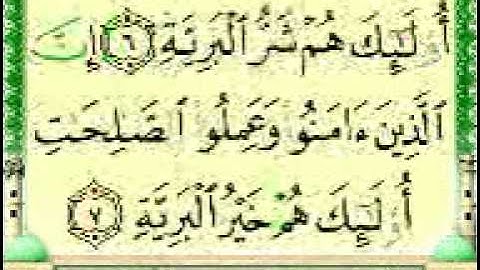 أُو۟لَـٰٓئِكَ هُمۡ شَرُّ ٱلۡبَرِيَّةِ ٦ إِنَّ
ٱلَّذِينَ ءَامَنُوا۟ وَعَمِلُوا۟ ٱلصَّـٰلِحَـٰتِ
أُو۟لَـٰٓئِكَ هُمۡ خَيۡرُ ٱلۡبَرِيَّةِ ٧